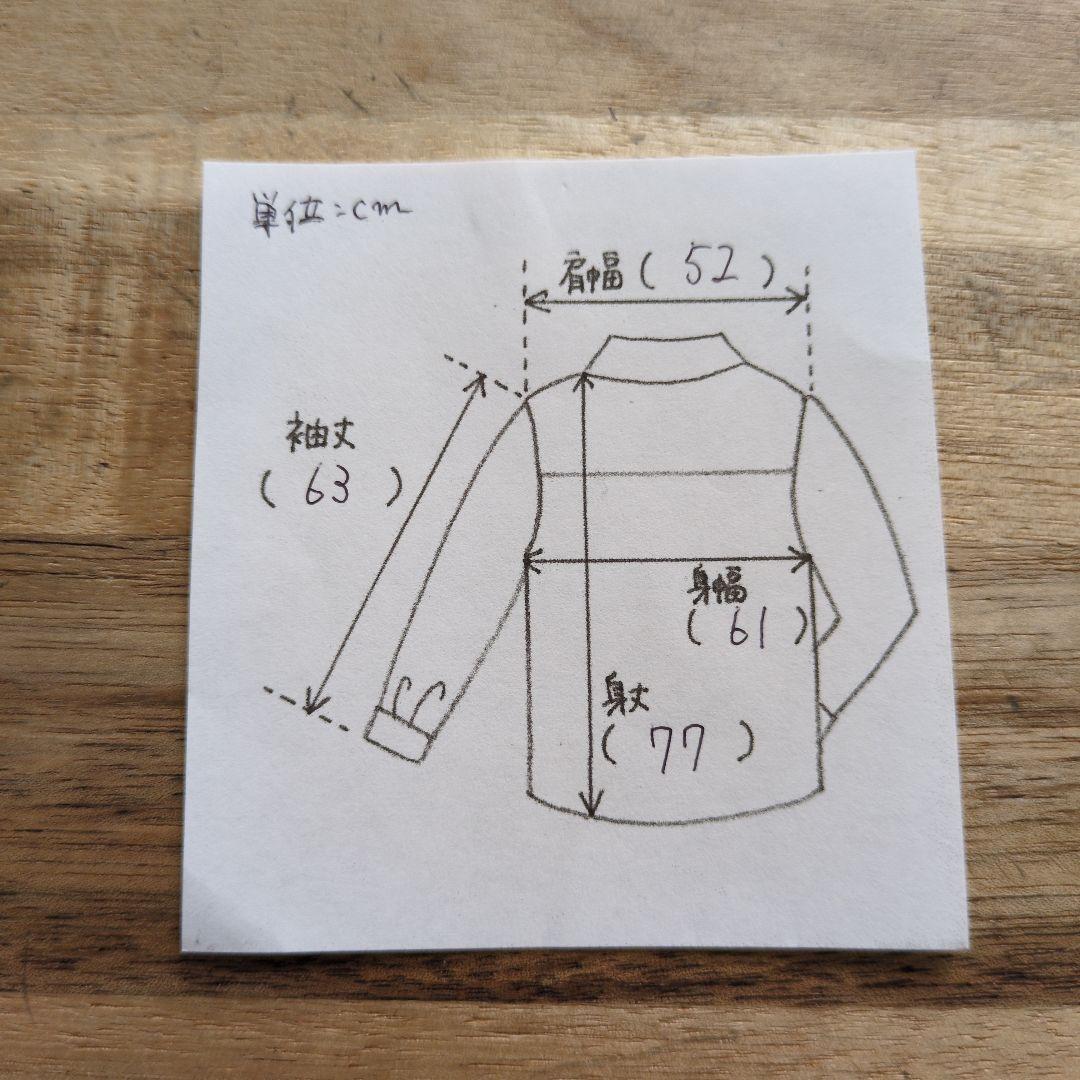 単位:cm
肩幅( 52 )
袖丈
( 63 )
身幅
( 61 )
身丈
( 77 )